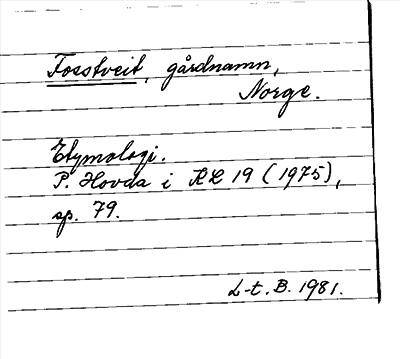 Fosstveit, gårdnamn,
Norge.
Etymologi.
P. Hovda i KL 19 (1975),
sp. 79.
L-t. B. 1981.